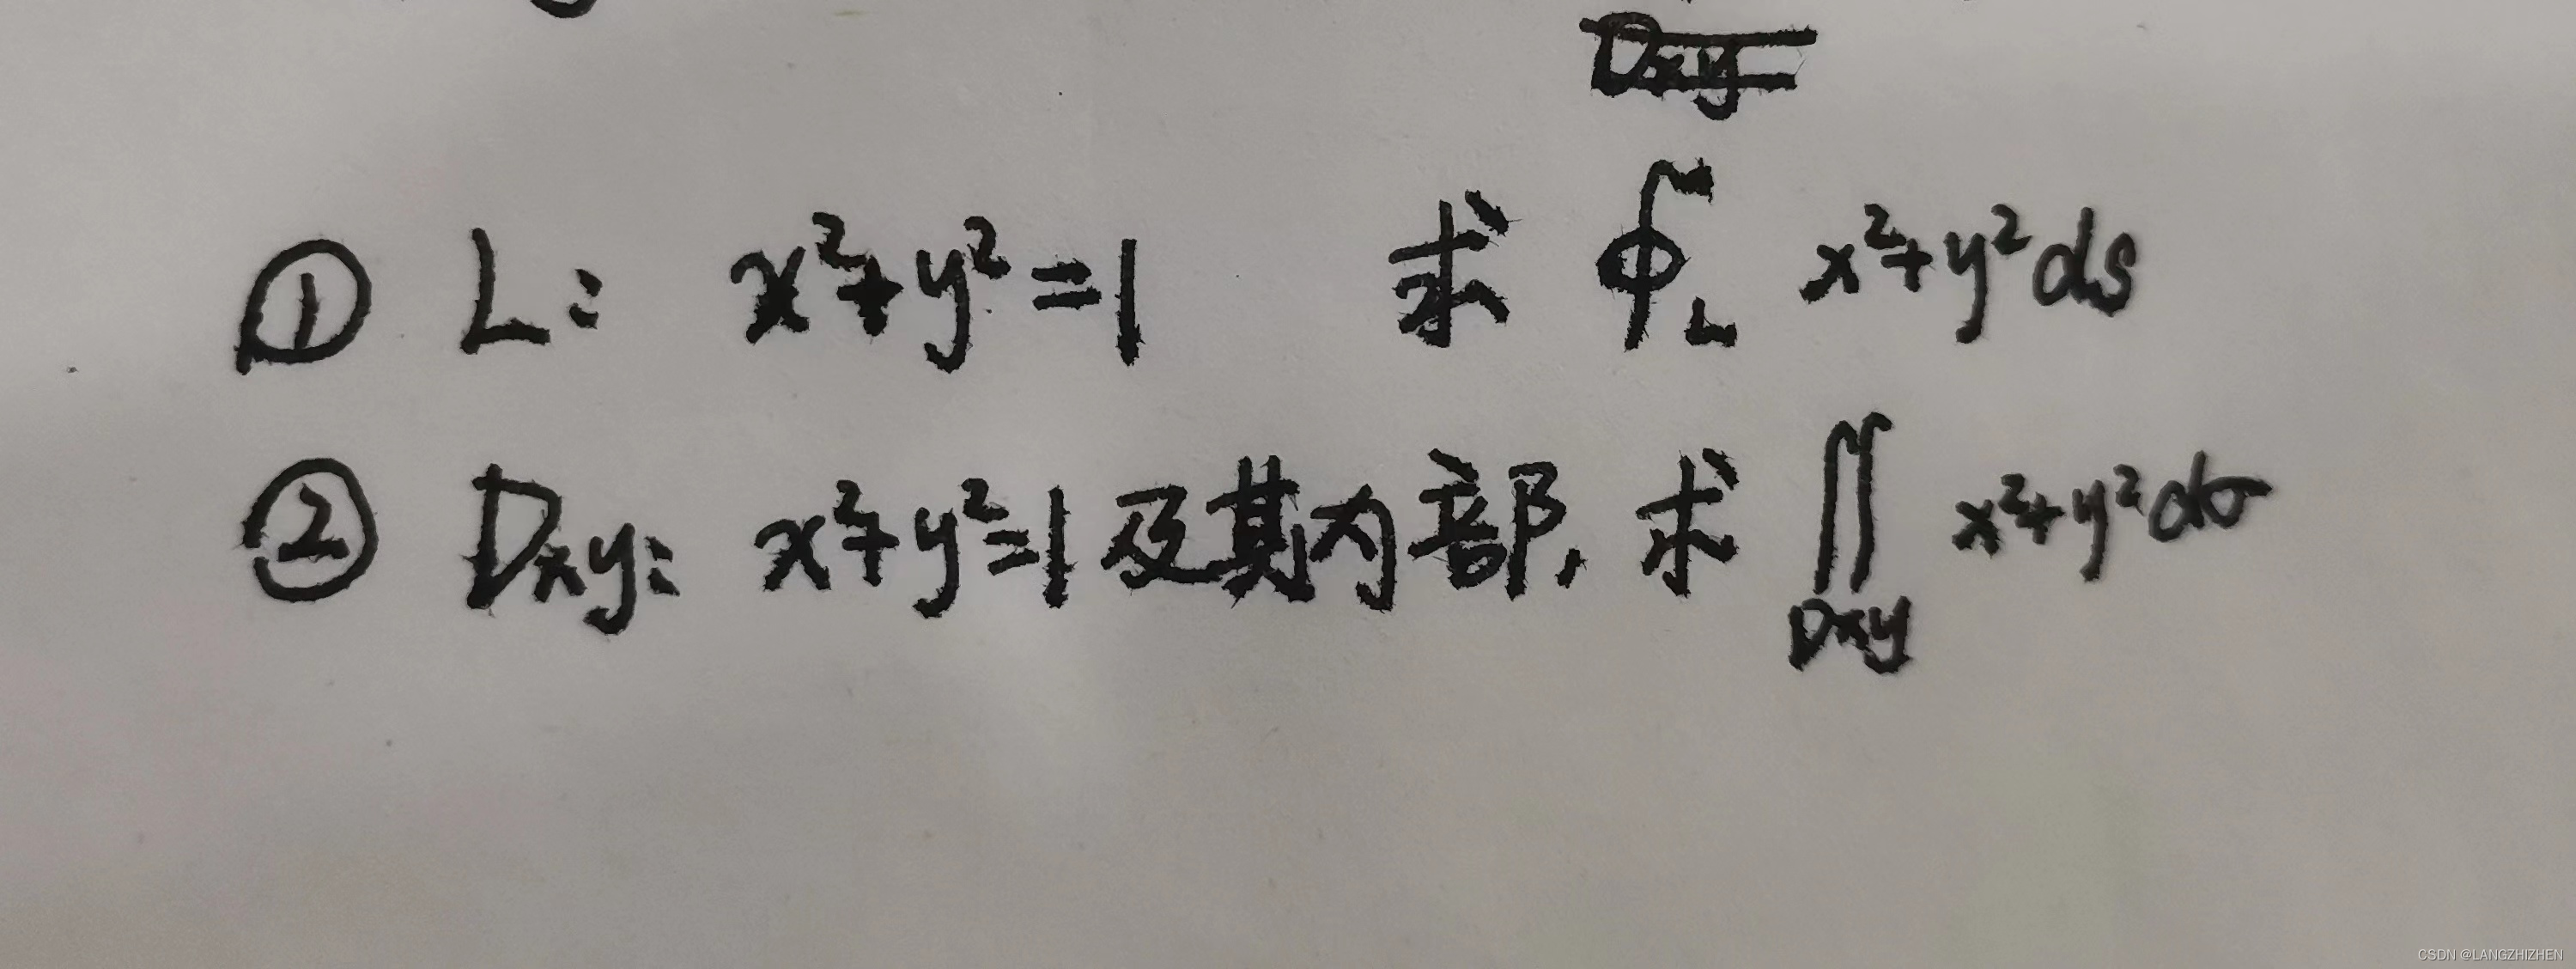 Dxy=
① L: x²+y²=1 求 ∮L x²+y² ds
② Dxy: x²+y²=1及其内部, 求 ∬Dxy x²+y² dσ
CSDN @LANGZHIZHEN